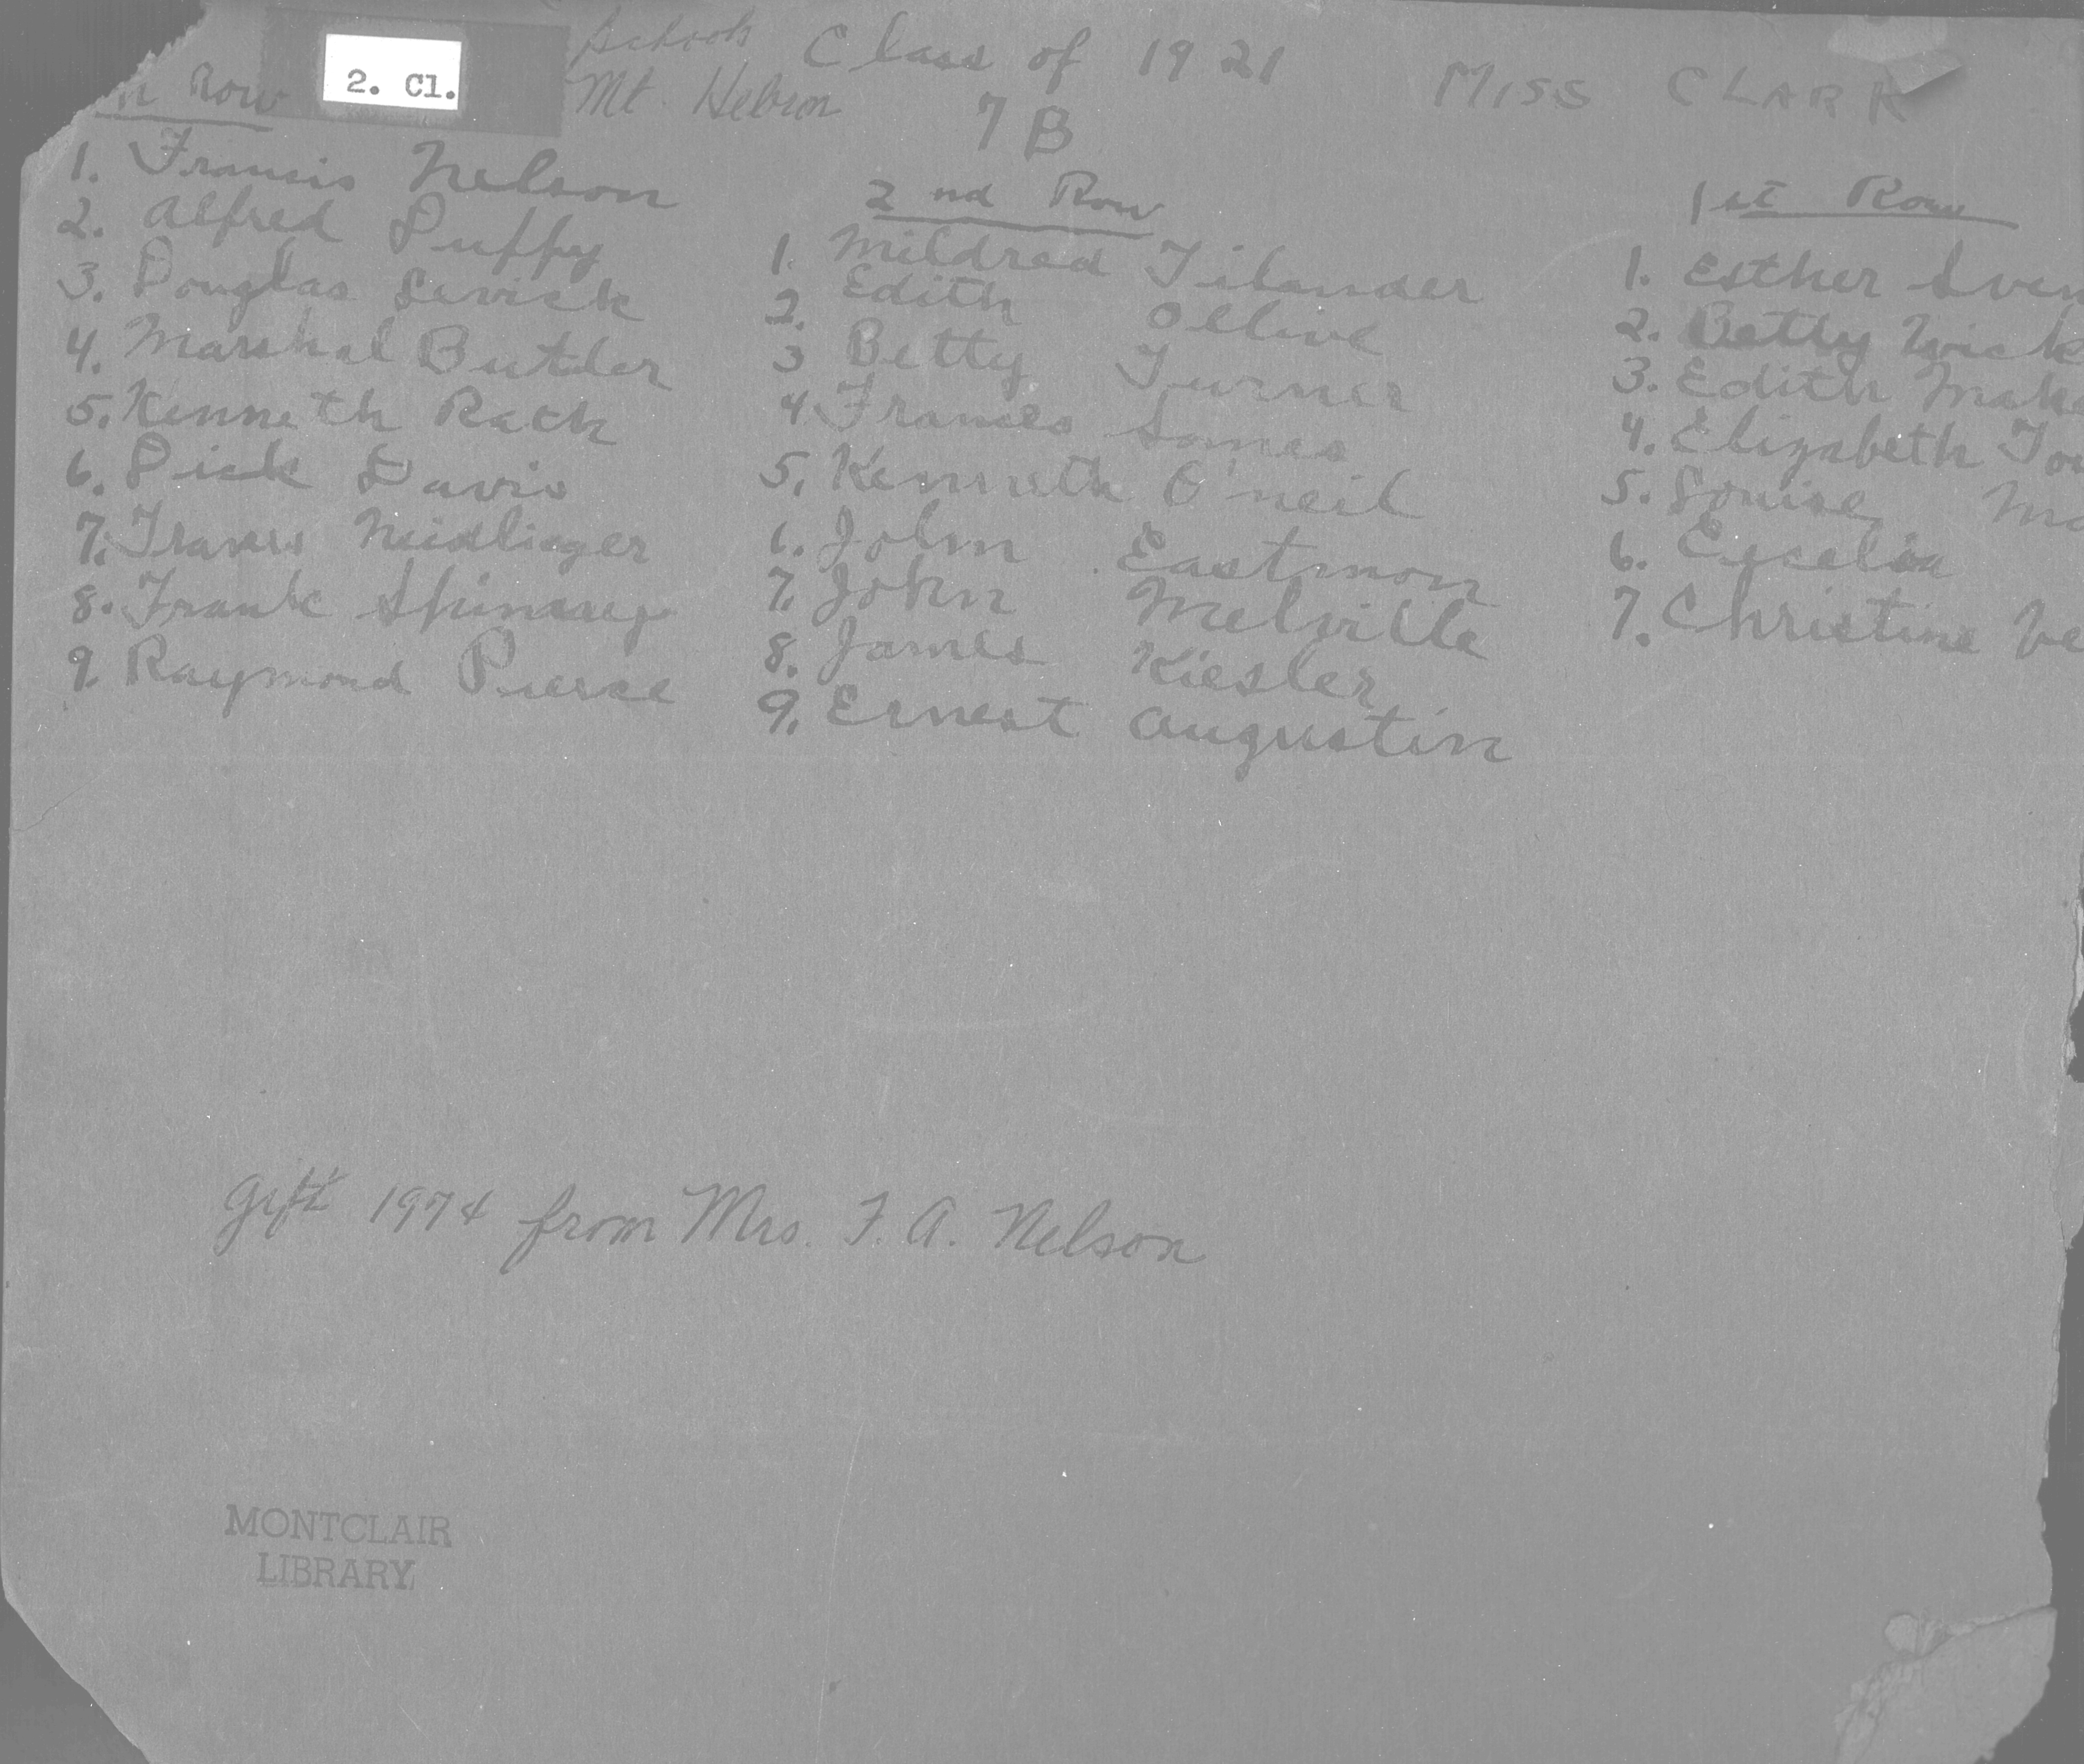 Schools Class of 1921 MISS CLARK
2. Cl.
Mt. Hebron
7B
Row
1. Francis Nelson
2. Alfred Duffy
3. Douglas Levick
4. Marshal Butler
5. Kenneth Rack
6. Dick Davis
7. Neidlinger
8. Frank
9. Raymond Pierce
2nd Row
1. Mildred Tilander
2. Edith Ollive
3 Betty Turner
4 Frances James
5. Kenneth O'neil
6. John Eastmon
7. John Melville
8. James Kiesler
9. Ernest Augustin
1st Row
1. Esther Sven
2. Betty Wick
3. Edith Mak
4. Elizabeth
5. Louise
6. Ecselia
7. Christine Ve
Gift 1974 from Mrs. F. A. Nelson
MONTCLAIR
LIBRARY